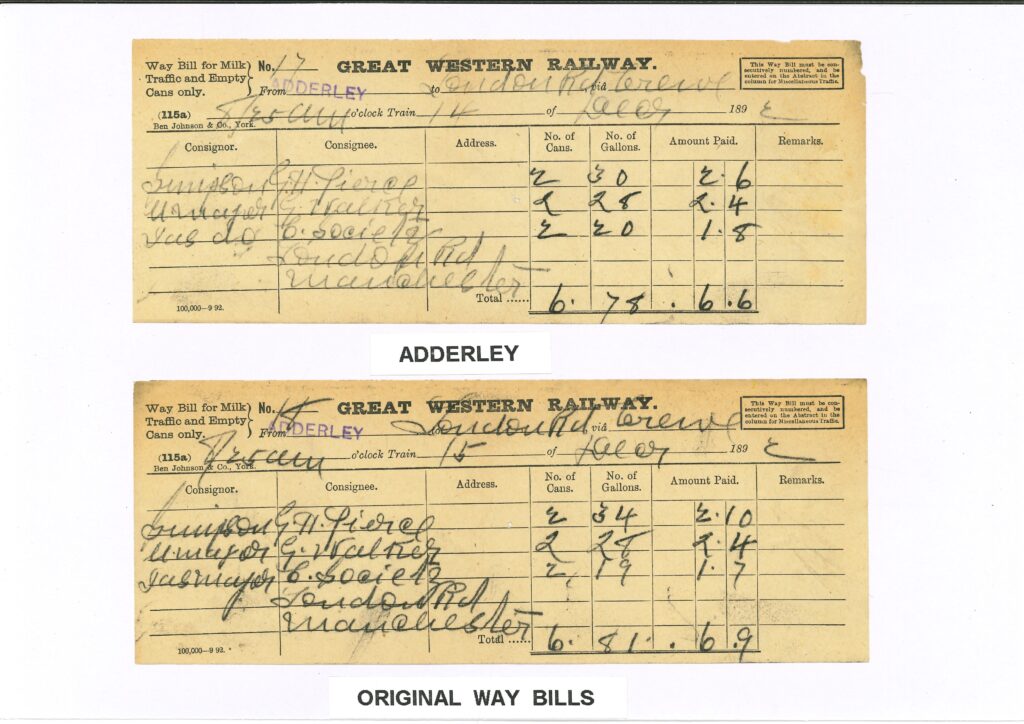 Way Bill for Milk Traffic and Empty Cans only. No. 17 GREAT WESTERN RAILWAY. This Way Bill must be consecutively numbered, and be entered on the Abstract in the column for Miscellaneous Traffic.
From ADDERLEY to London Rd via Crewe
(115a) o'clock Train 14 of 189 2
Ben Johnson & Co., York.
Consignor. Consignee. Address. No. of Cans. No. of Gallons. Amount Paid. Remarks.
Simpson G.H. Pierce 2 30 2.6
G. Walker 2 28 2.4
C. Society 2 20 1.8
London Rd
Manchester
Total ...... 6. 78. 6.6
100,000—9 92.
ADDERLEY
Way Bill for Milk Traffic and Empty Cans only. No. GREAT WESTERN RAILWAY. This Way Bill must be consecutively numbered, and be entered on the Abstract in the column for Miscellaneous Traffic.
From ADDERLEY to London Rd via Crewe
(115a) o'clock Train 15 of 189 2
Ben Johnson & Co., York.
Consignor. Consignee. Address. No. of Cans. No. of Gallons. Amount Paid. Remarks.
Simpson G.H. Pierce 2 34 2.10
G. Walker 2 28 2.4
C. Society 2 19 1.7
London Rd
Manchester
Total ...... 6. 81. 6.9
100,000—9 92.
ORIGINAL WAY BILLS